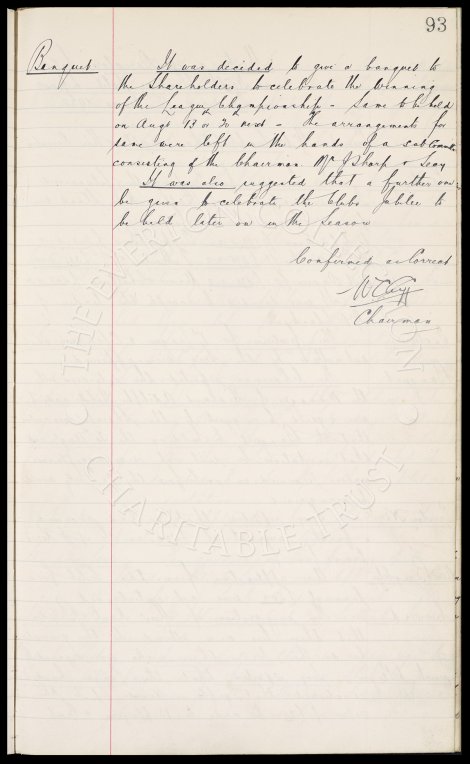 93
Banquet
It was decided to give a banquet to
the Shareholders to celebrate the winning
of the League Championship - Same to be held
on Augt 13 or 20 next - The arrangements for
same were left in the hands of a sub Committee
consisting of the Chairman Mr J Sharp & Secy
It was also suggested that a further one
be given to celebrate the Clubs Jubilee to
be held later on in the Season
Confirmed as Correct
W C Cuff
Chairman
THE EVERTON COLLECTION
CHARITABLE TRUST